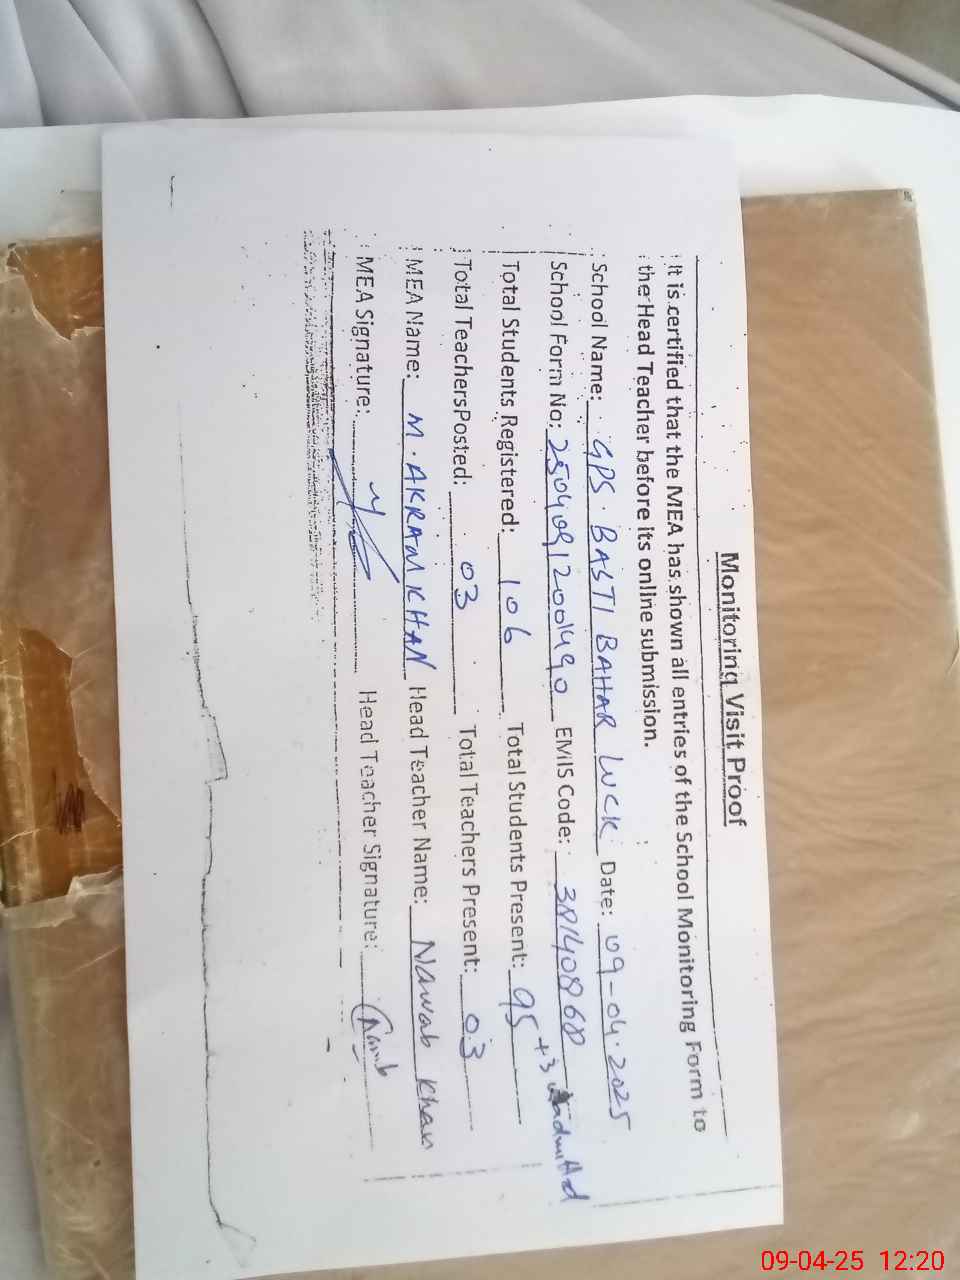 Monitoring Visit Proof
It is certified that the MEA has shown all entries of the School Monitoring Form to
the Head Teacher before its online submission.
School Name: GPS. BASTI BAHAR LUCK Date: 09-04-2025
School Form No: 2504091200490 EMIS Code: 38140868
Total Students Registered: 106 Total Students Present: 95 +3 admitted
Total TeachersPosted: 03 Total Teachers Present: 03
MEA Name: M. AKRAM KHAN Head Teacher Name: Nawab Khan
MEA Signature: Head Teacher Signature:
09-04-25 12:20